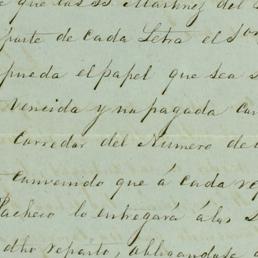 que las SS. Martinez del
parte de cada Letra el Sor
pueda el papel que sea
Vencida y no pagada
Corredor del Numero de
convenido que á cada
Pacheco lo entregará á las
dho reparto, obligandose